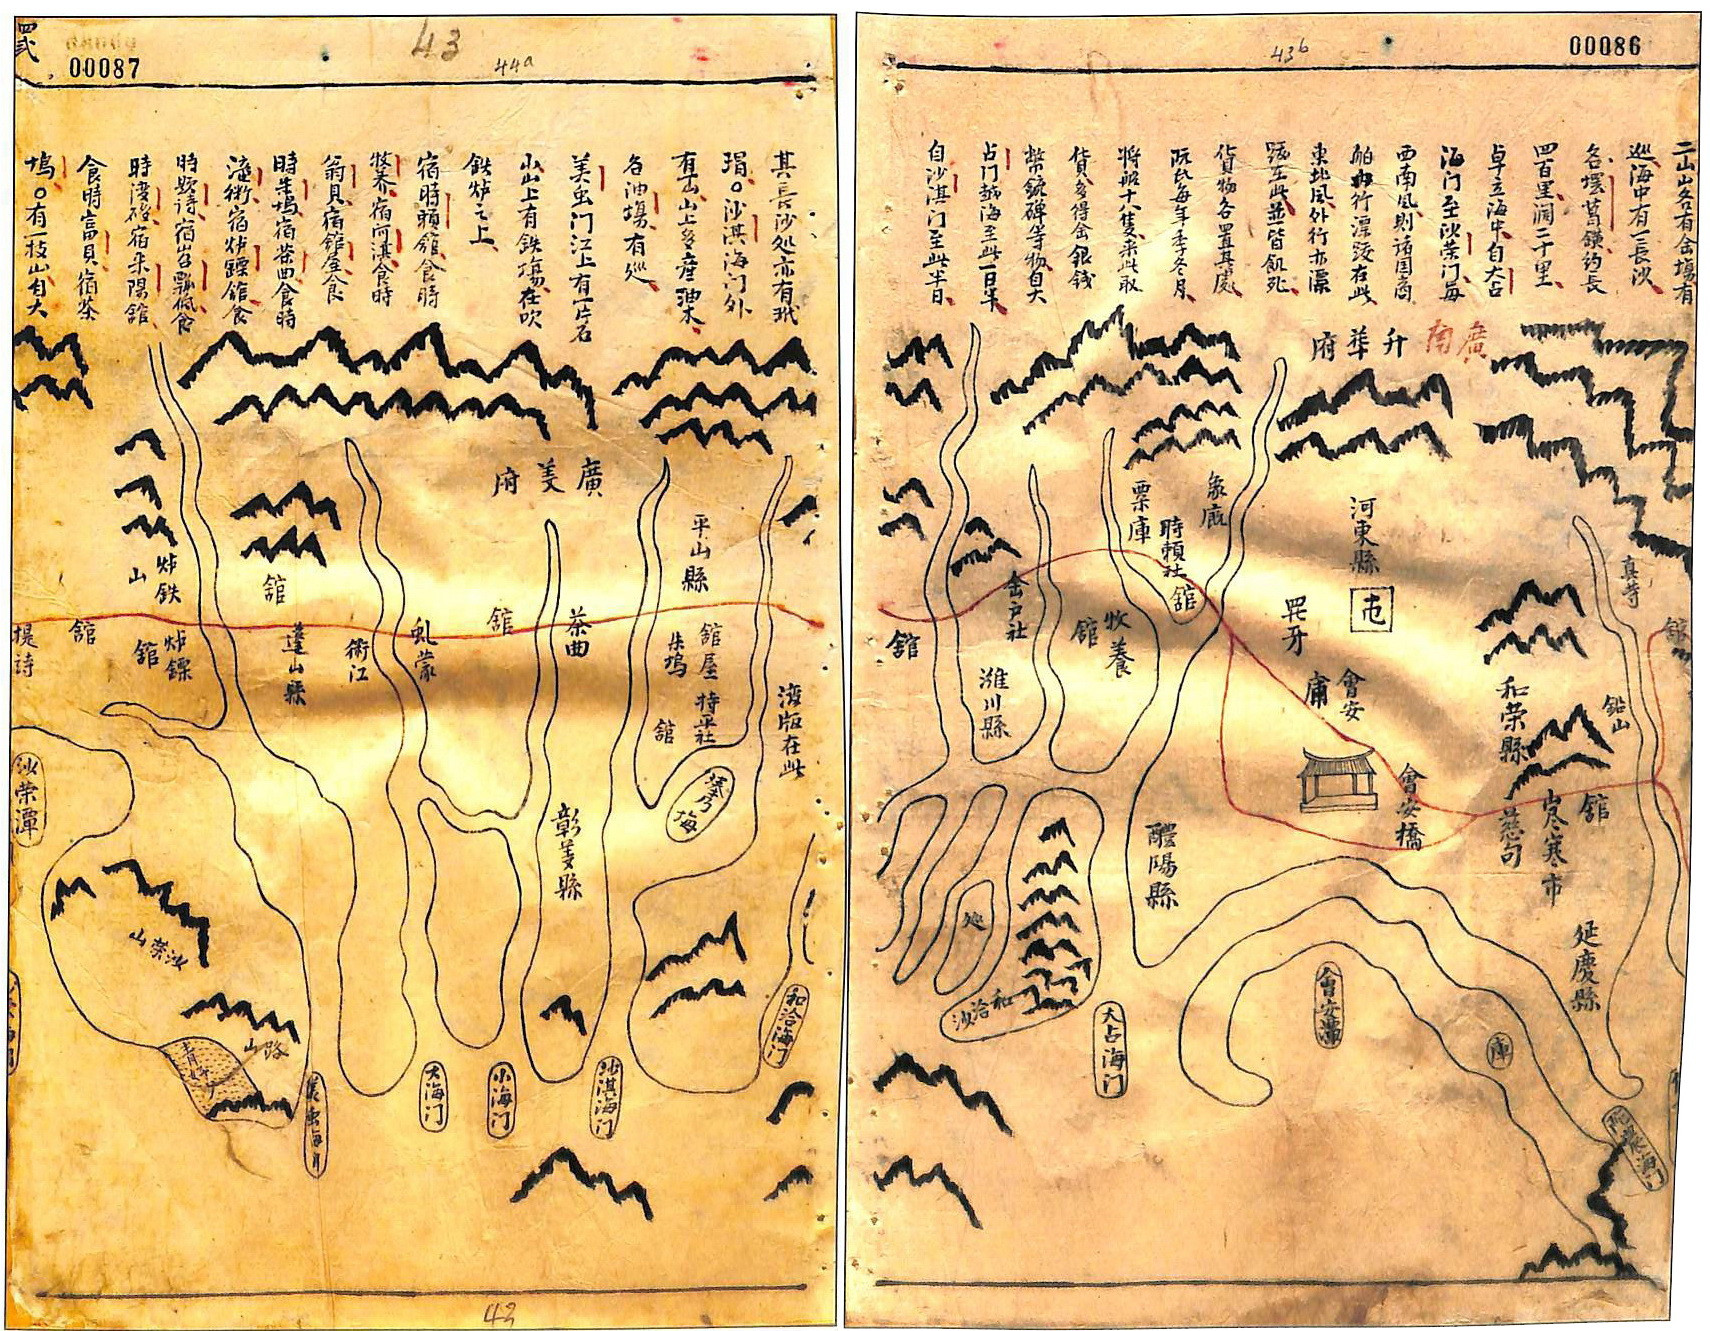 00086
43b
二山山各有金塲有
巡海中有一長沙
名𡓁葛鐄約長
四百里濶二十里
卓立海中自大占
海门至沙荣门每
西南風則諸国商
舶内行漂跋在此
東北風外行亦漂
跋在此並皆飢死
貨物各置其處
阮氏每年季冬月
將船十八隻来此取
貨多得金銀钱
幣銃碑等物自大
占门越海至此一日半
自沙淇门至此半日
廣南
升華府
真寺
舘
鉛山
河東縣
和荣縣
舘
慈句
延慶縣
會安
會安橋
象廐
粟庫
時賴社
舘
牧養
舘
金戸社
濰川縣
舘
醴陽縣
處
和洽沙
大占海门
會安潭
庫
00087
43
44a
其長沙処亦有玳
瑁○沙淇海门外
有山山上多產油木
名油塲有巡
美虫门江上有一片石
山山上有鉄塲在吹
鉄炉之上
宿時頼舘食時
牧养宿沔淇食時
翁貝宿舘屋食
時朱塢宿茶曲食時
衛宿炉鏢舘食
時诗宿岩瓢食
時宿禾陽舘
食時富貝宿茶
塢○有一枝山自大
廣美府
平山縣
舘屋
朱塢
持平社
舘
版在此
茶曲
舘
彰美縣
虬蒙
術江
蓬山縣
舘
炉鉄山
炉鏢
舘
舘
提詩
沙荣潭
沙荣山
路山
和洽海门
沙淇海门
小海门
大海门
43